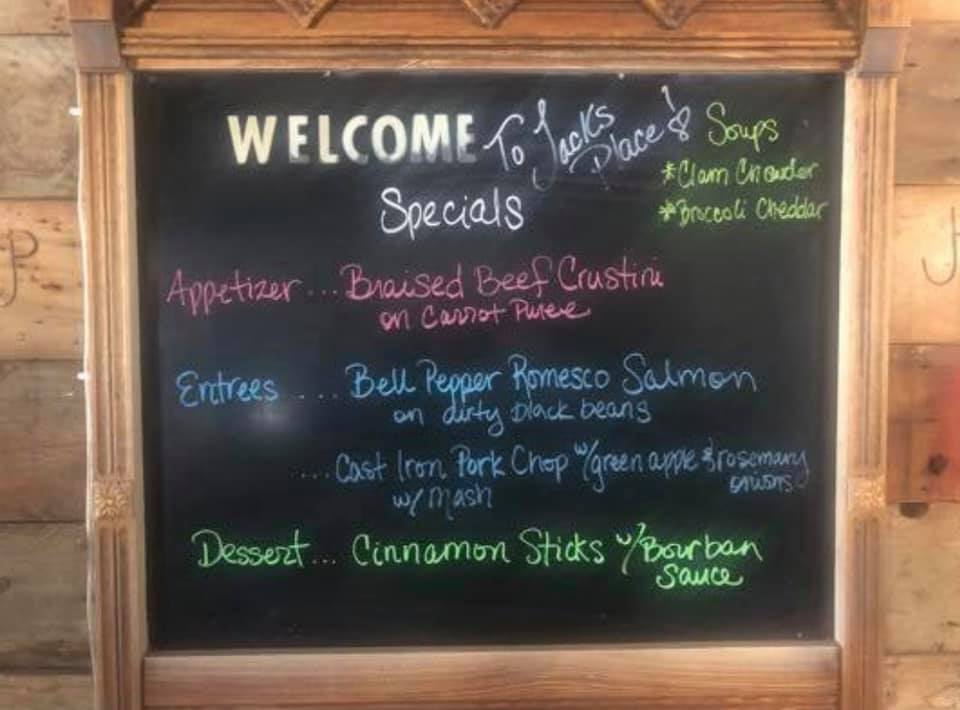 WELCOME To Jacks Place!
Soups
*Clam Chowder
*Broccoli Cheddar
Specials
Appetizer ... Braised Beef Crustini
on Carrot Puree
Entrees .... Bell Pepper Romesco Salmon
on dirty black beans
.... Cast Iron Pork Chop w/green apple & rosemary
onions
w/ Mash
Dessert ... Cinnamon Sticks w/Bourban
Sauce